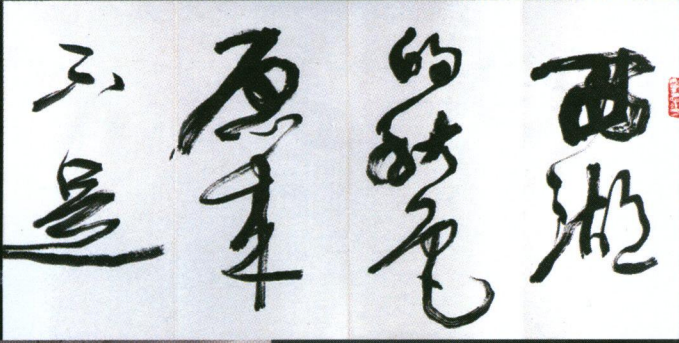 西湖
的秋色
原来
不是